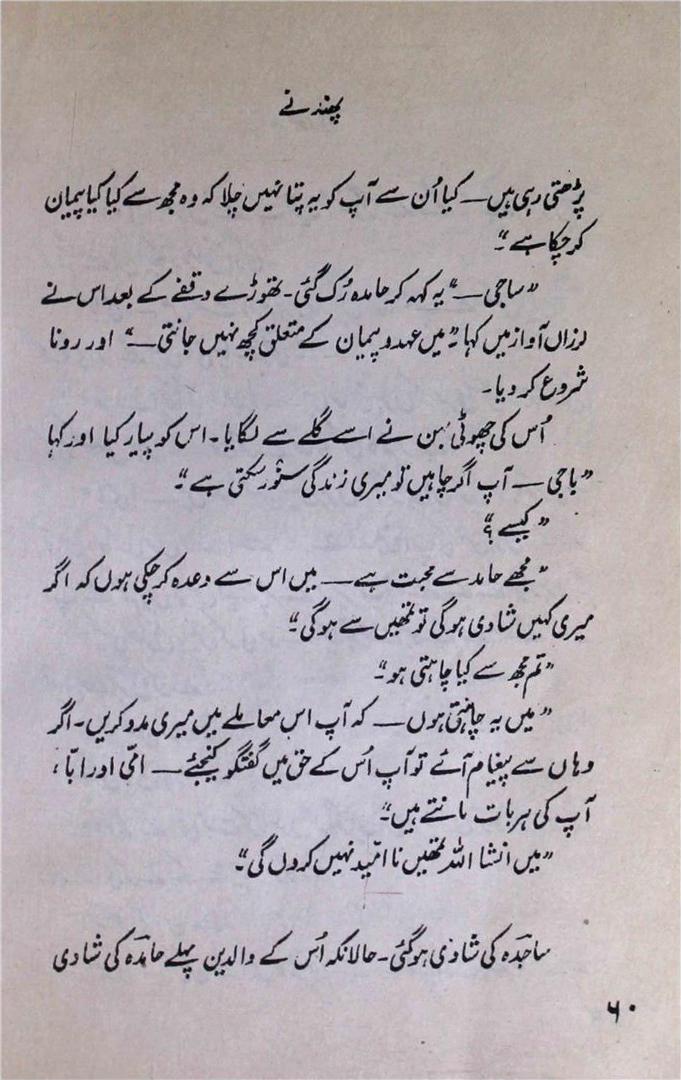 پھندنے
پڑھتی رہی ہیں — کیا اُن سے آپ کو یہ پتا نہیں چلا کہ وہ مجھ سے کیا کیا پیمان
کر چکا ہے“۔
”ساجی —“ یہ کہہ کر حامدہ رُک گئی۔ تھوڑے وقفے کے بعد اس نے
لرزاں آواز میں کہا۔ ”میں عہد و پیمان کے متعلق کچھ نہیں جانتی —“ اور رونا
شروع کر دیا۔
اُس کی چھوٹی بہن نے اسے گلے سے لگایا۔ اس کو پیار کیا اور کہا
”باجی — آپ اگر چاہیں تو میری زندگی سنّور سکتی ہے“۔
”کیسے؟“
”مجھے حامد سے محبت ہے — میں اس سے وعدہ کر چکی ہوں کہ اگر
میری کہیں شادی ہوگی تو تمھیں سے ہوگی“۔
”تم مجھ سے کیا چاہتی ہو“۔
”میں یہ چاہتی ہوں — کہ آپ اس معاملے میں میری مدد کریں۔ اگر
وہاں سے پیغام آئے تو آپ اُس کے حق میں گفتگو کیجئے — امّی اور ابّا،
آپ کی ہر بات مانتے ہیں“۔
”میں انشا اللہ تمھیں نا امّید نہیں کروں گی“۔
ساجدہ کی شادی ہوگئی۔ حالانکہ اُس کے والدین پہلے حامدہ کی شادی
۶۰